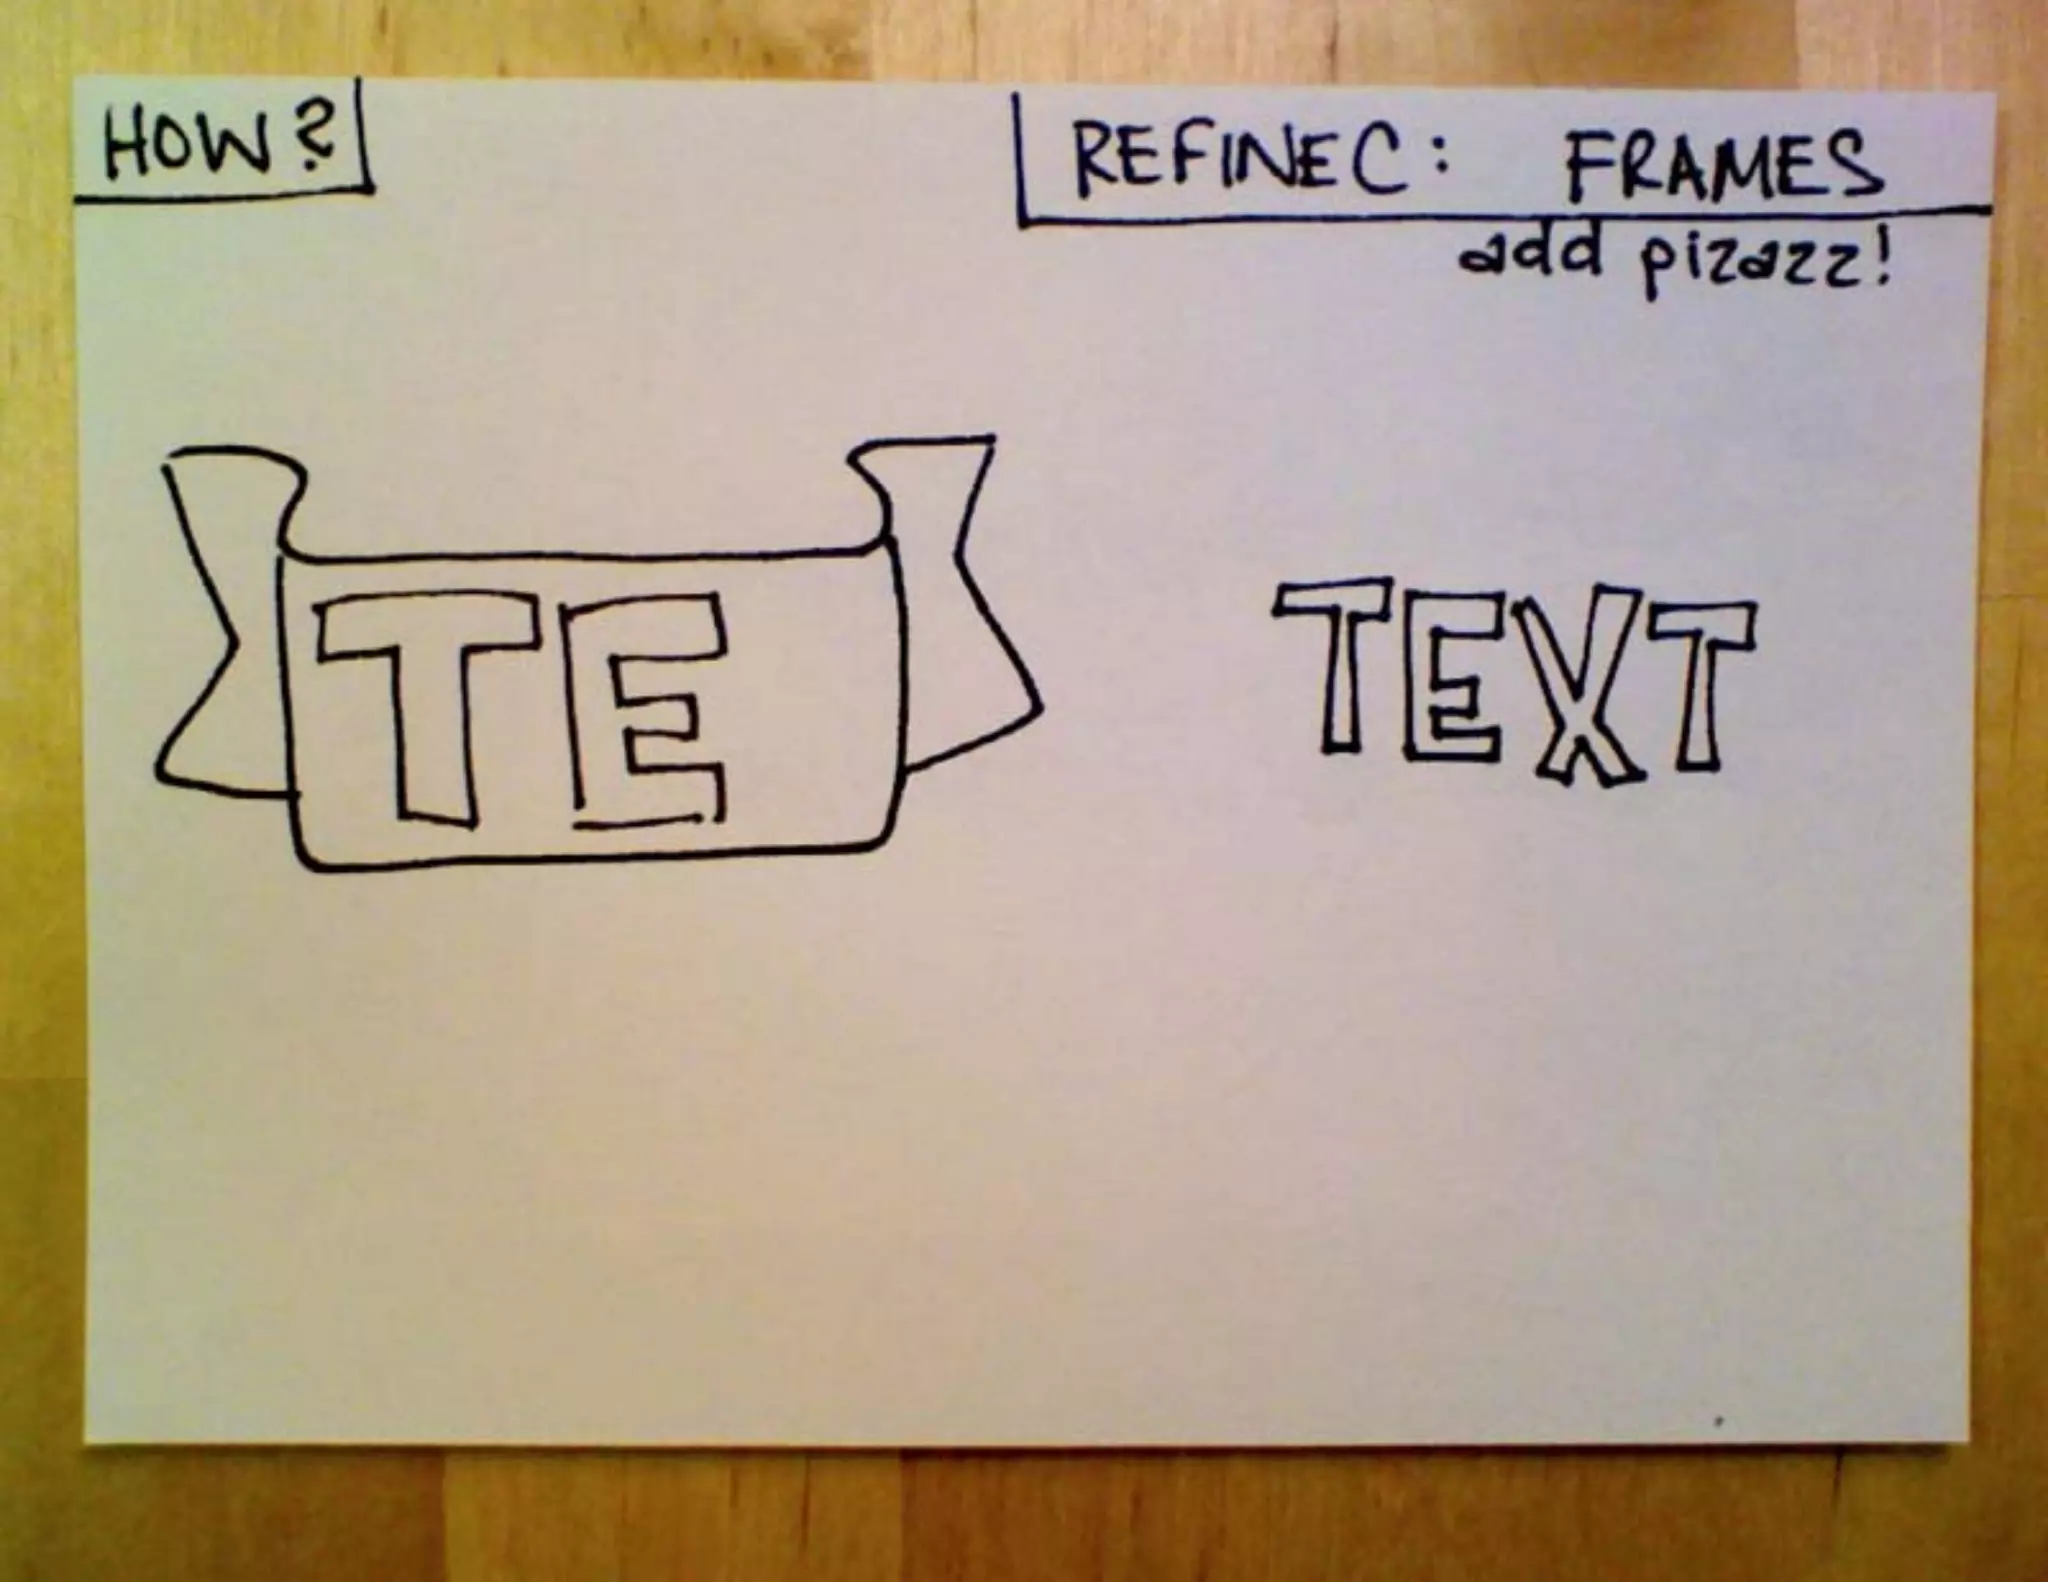 HOW?
REFINEC: FRAMES
add pizazz!
TE
TEXT